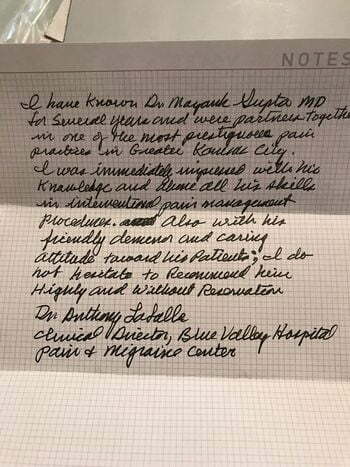 NOTES
I have known Dr. Mayank Gupta MD
for several years and were partners together
in one of the most prestigious pain
practices in Greater Kansas City.
I was immediately impressed with his
Knowledge and above all his skills
in interventional pain management
procedures. Also with his
friendly demenor and caring
attitude toward his Patients; I do
not hesitate to Recommend him
Highly and without Reservation
Dr. Anthony LaSalle
Clinical Director, Blue Valley Hospital
Pain & Migraine Center